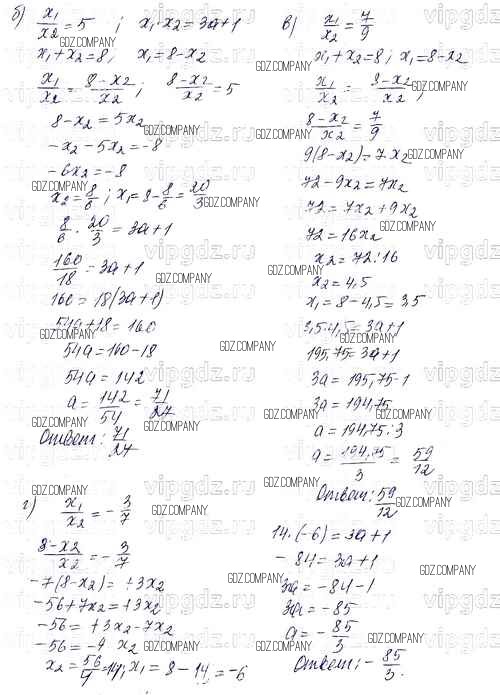 б) x₁/x₂ = 5 ; x₁·x₂ = 3a+1
x₁+x₂=8; x₁=8-x₂
x₁/x₂ = (8-x₂)/x₂ ; (8-x₂)/x₂ = 5
8-x₂ = 5x₂
-x₂-5x₂=-8
-6x₂=-8
x₂=8/6; x₁=8-8/6=20/3
8/6 · 20/3 = 3a+1
160/18 = 3a+1
160=18(3a+1)
54a+18=160
54a=160-18
54a=142
a=142/54=71/27
Ответ: 71/27
в) x₁/x₂=7/9
x₁+x₂=8; x₁=8-x₂
x₁/x₂ = (8-x₂)/x₂ ;
(8-x₂)/x₂=7/9
9(8-x₂)=7x₂
72-9x₂=7x₂
72=7x₂+9x₂
72=16x₂
x₂=72:16
x₂=4,5
x₁=8-4,5=3,5
3,5·4,5=3a+1
195,75=3a+1
3a=195,75-1
3a=194,75
a=194,75:3
a=194,75/3=59/12
Ответ: 59/12
г) x₁/x₂=-3/7
(8-x₂)/x₂=-3/7
-7(8-x₂)=+3x₂
-56+7x₂=+3x₂
-56=+3x₂-7x₂
-56=-4x₂
x₂=56/4=14; x₁=8-14=-6
14·(-6)=3a+1
-84=3a+1
3a=-84-1
3a=-85
a=-85/3
Ответ: -85/3.
GDZ.COMPANY
vipgdz.ru